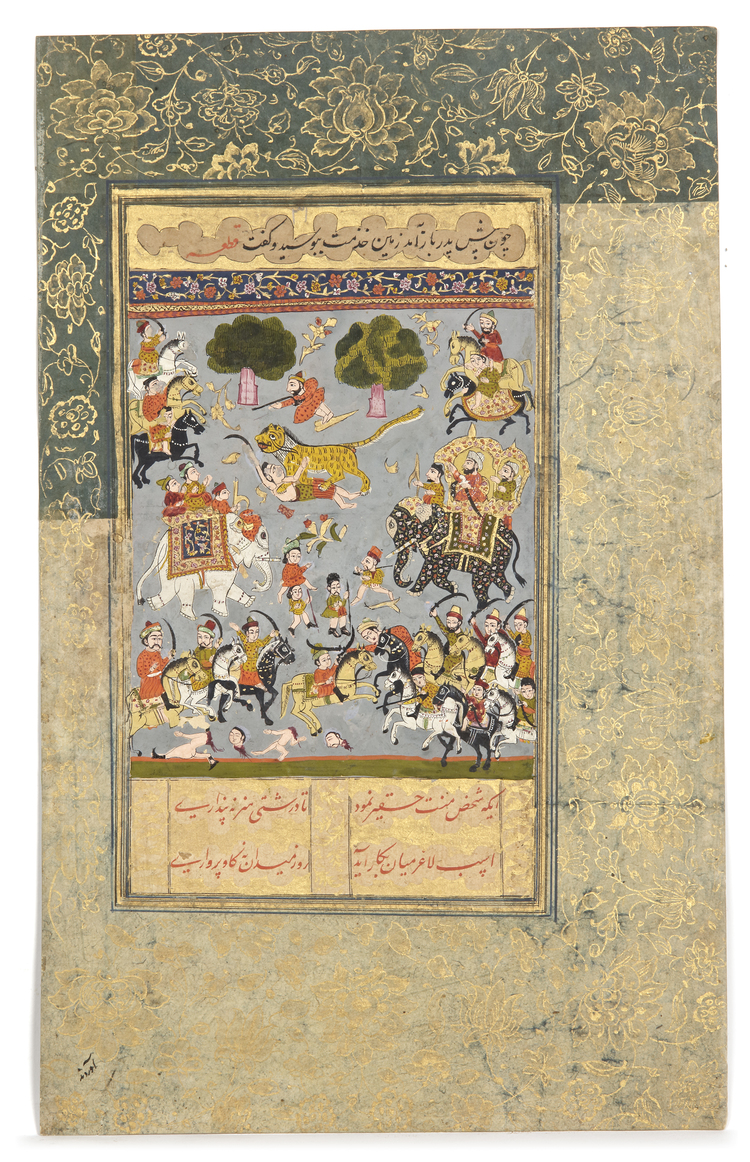 چون پیش پدر باز آمد زمین خدمت ببوسید و گفت قطعه
ایکه شخص منت حقیر نمود تا درشتی هنر نه پنداری
اسپ لاغر میان بکار آید روز میدان نه گاو پرواری